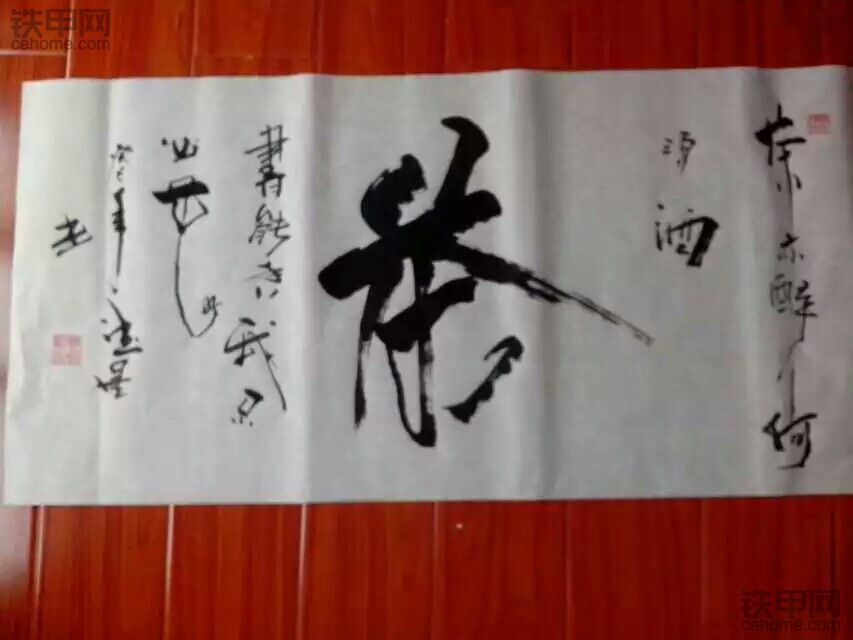 铁甲网
cehome.com
茶亦醉人何
须酒
茶
書能香我不
必花
癸巳年
铁甲网
cehome.com